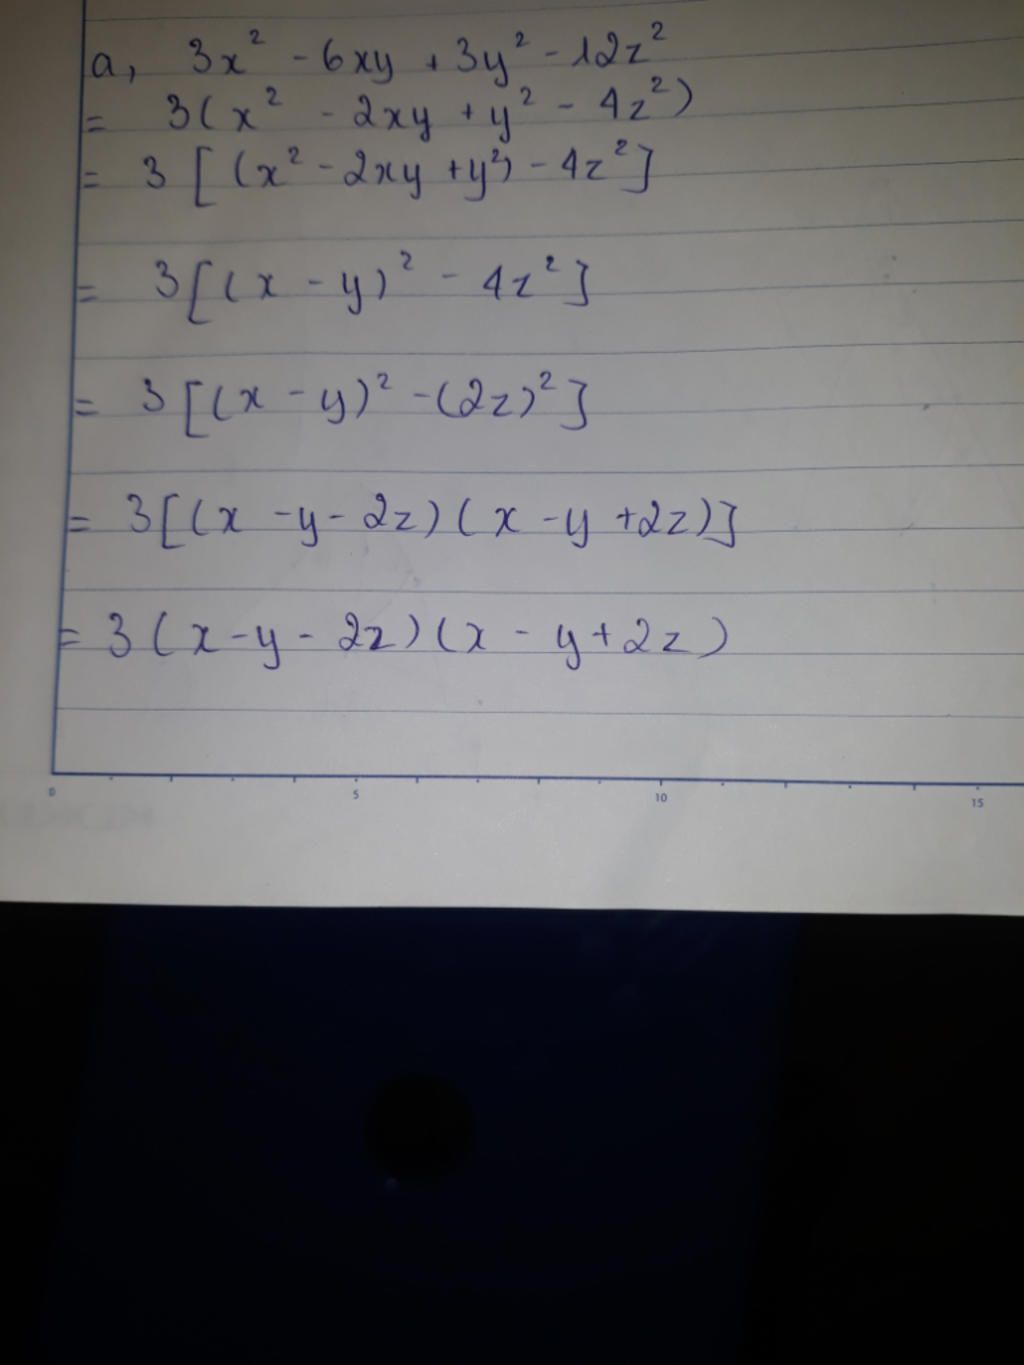 a, 3x² - 6xy + 3y² - 12z²
= 3(x² - 2xy + y² - 4z²)
= 3[(x² - 2xy + y²) - 4z²]
= 3[(x - y)² - 4z²]
= 3[(x - y)² - (2z)²]
= 3[(x - y - 2z)(x - y + 2z)]
= 3(x - y - 2z)(x - y + 2z)
0 5 10 15